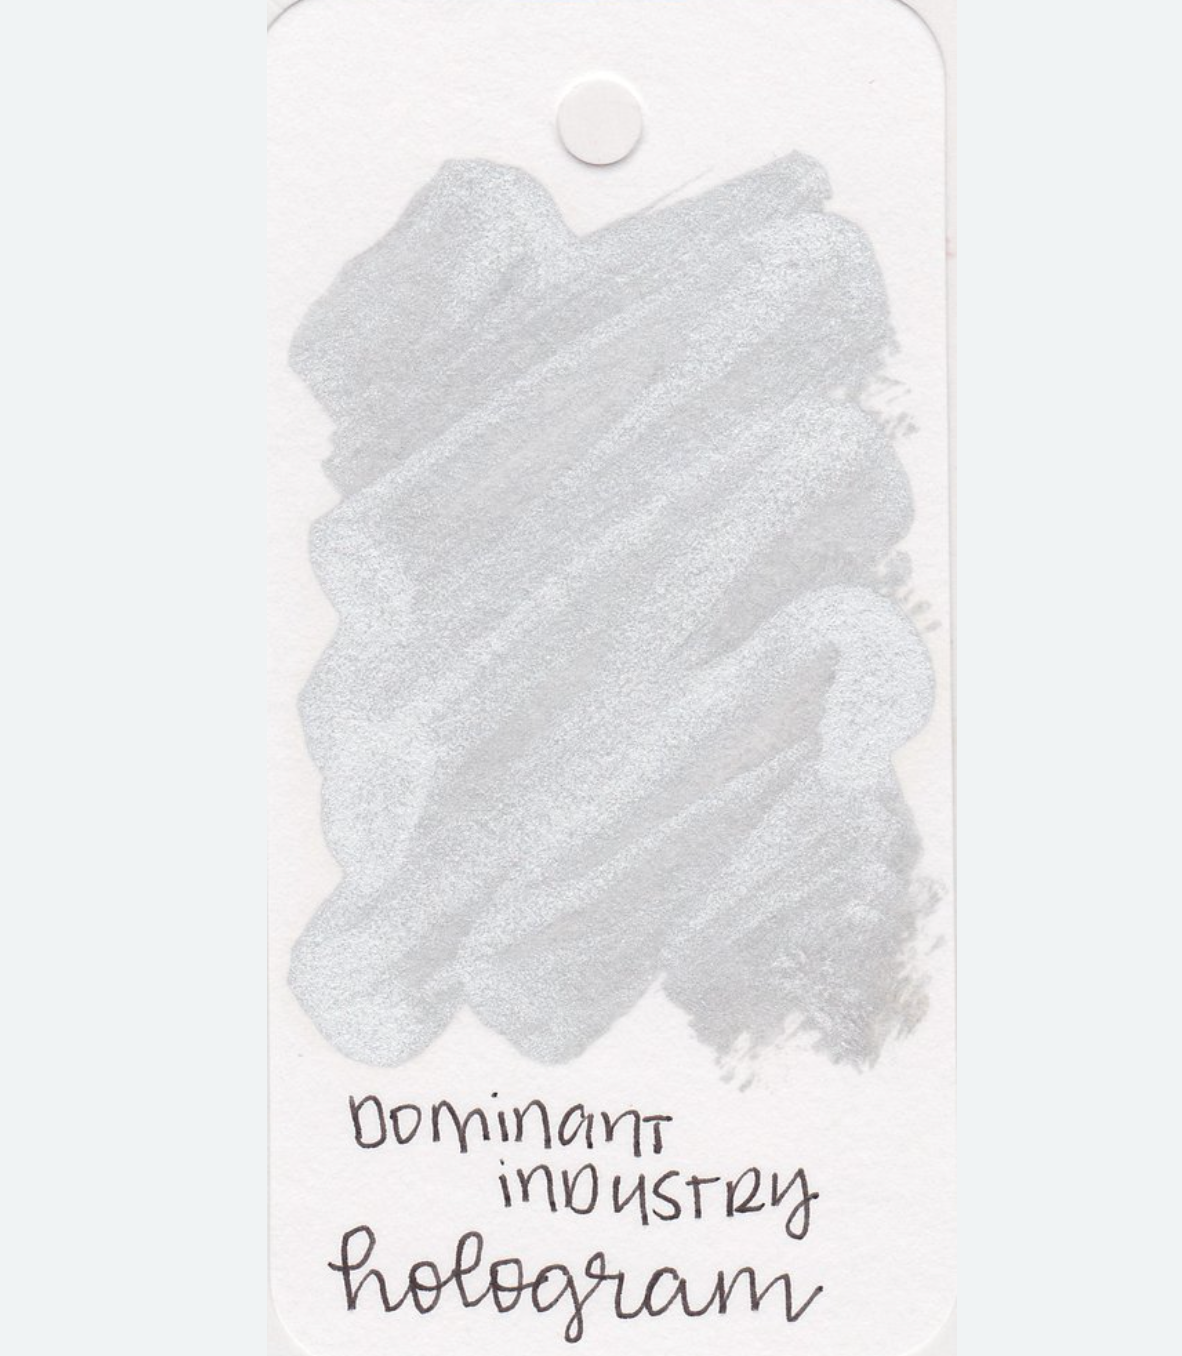 Dominant
industry
hologram